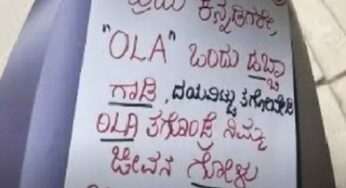 ಪ್ರಿಯ ಕನ್ನಡಿಗರೇ,
"OLA" ಒಂದು ಡಬ್ಬಾ
ಗಾಡಿ, ದಯವಿಟ್ಟು ತಗೋಬೇಡಿ
OLA ತಗೊಂಡ್ರೆ ನಿಮ್ಮ
ಜೀವನ ಗೋಳು